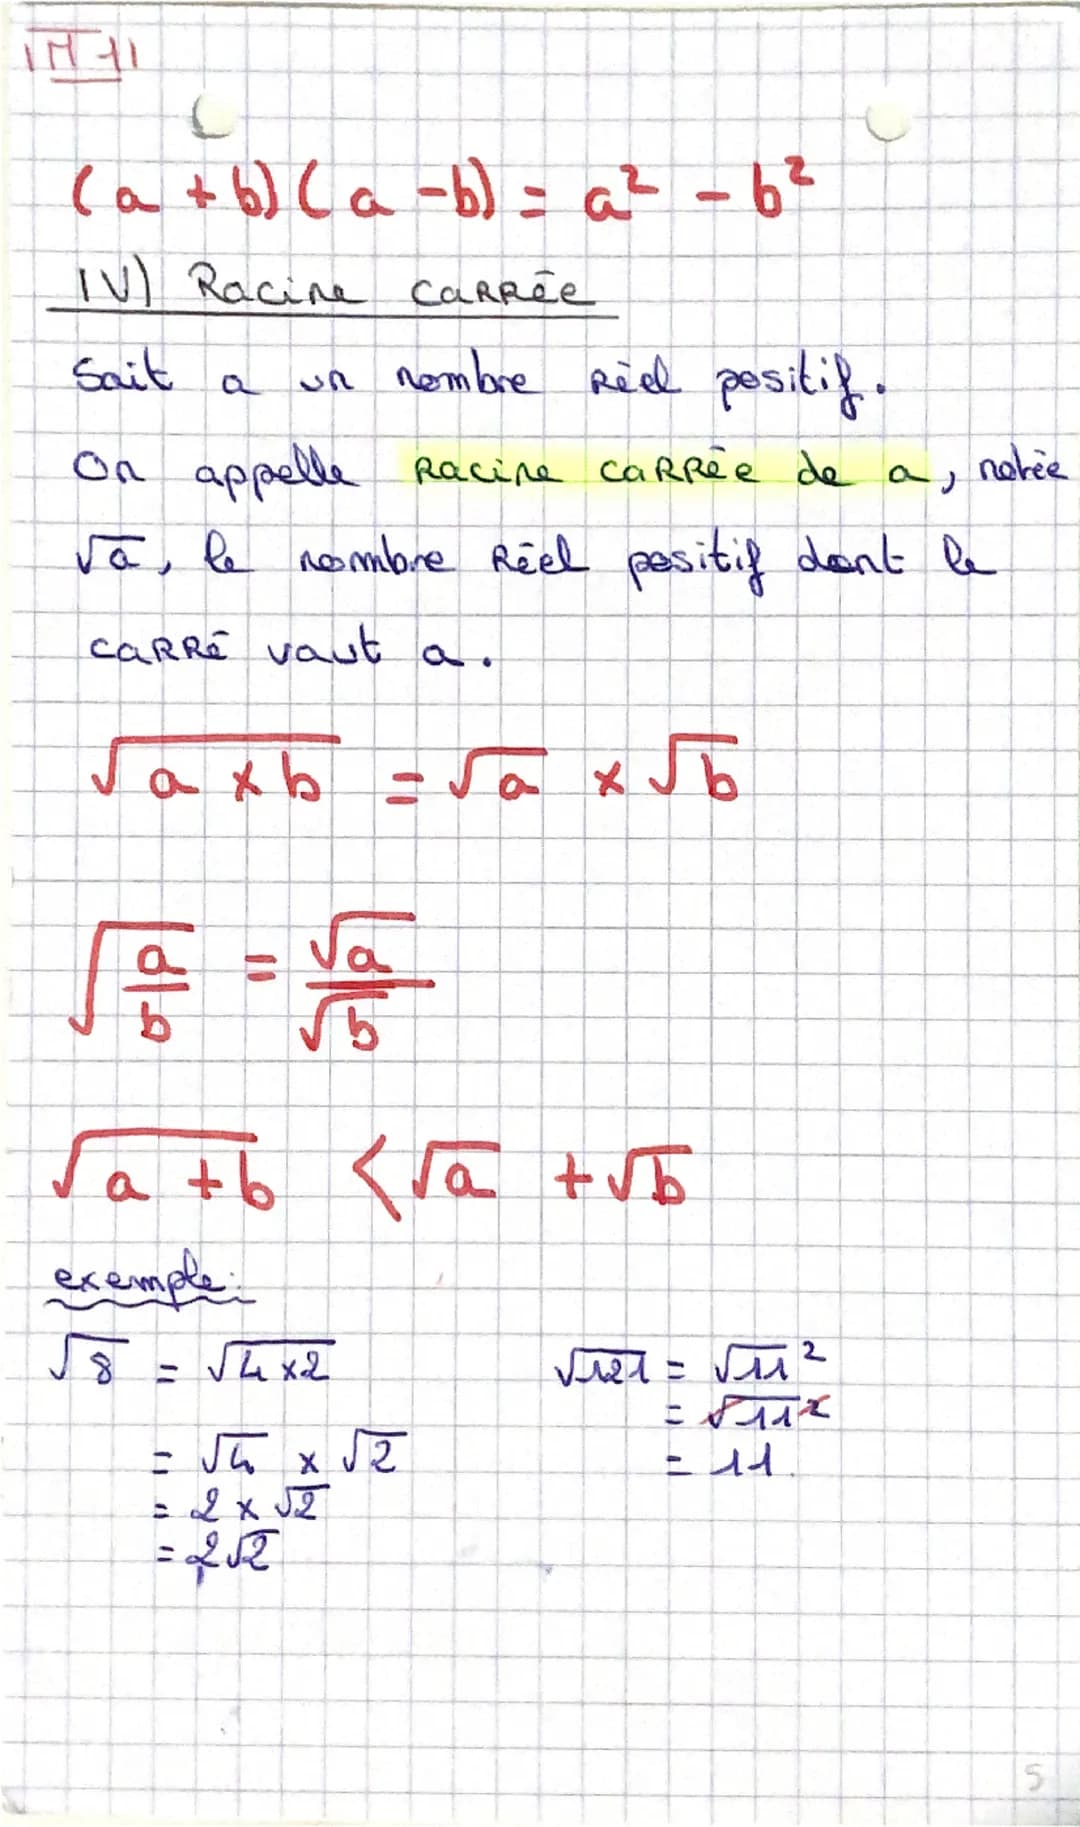 (a + b)(a - b) = a² - b²
IV) Racine carrée
Soit a un nombre réel positif.
On appelle racine carrée de a, notée
√a, le nombre réel positif dont le
carré vaut a.
√(a × b) = √a × √b
√(a/b) = √a/√b
√(a + b) < √a + √b
exemple:
√8 = √(4 × 2)
= √4 × √2
= 2 × √2
= 2√2
√121 = √11²
= √11²
= 11
5